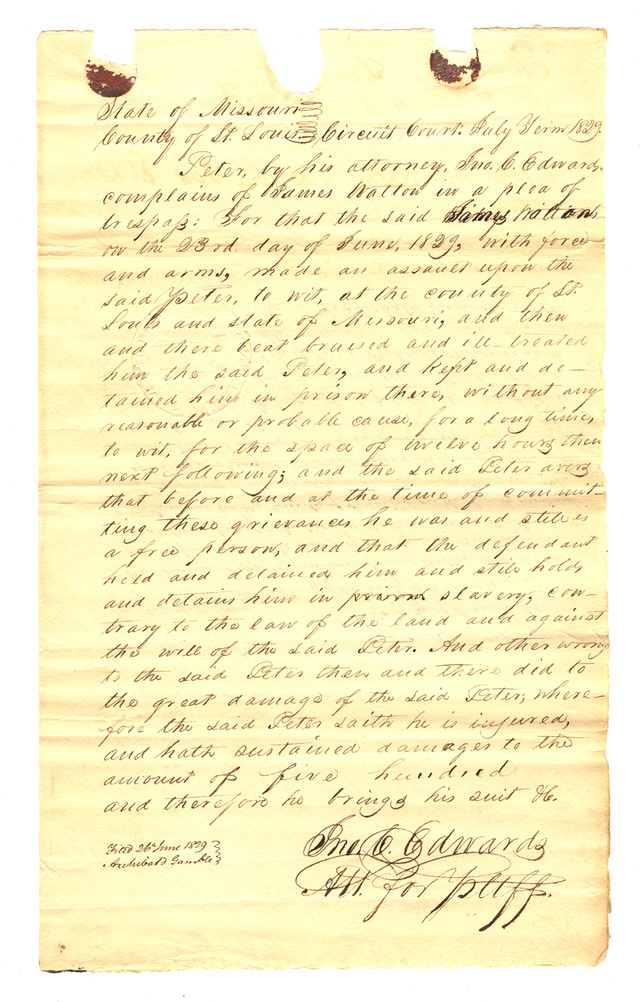 State of Missouri
County of St. Louis Circuit Court: July Term 1829.
Peter, by his attorney, Jno. C. Edwards,
complains of James Walton in a plea of
trespass: For that the said James Walton
on the 23rd day of June, 1829, with force
and arms, made an assault upon the
said Peter, to wit, at the county of St.
Louis and state of Missouri, and then
and there beat bruised and ill-treated
him the said Peter, and kept and de-
tained him in prison there, without any
reasonable or probable cause, for a long time,
to wit, for the space of twelve hours then
next following; and the said Peter avers
that before and at the time of commit-
ting these grievances he was and still is
a free person, and that the defendant
held and detained him and still holds
and detains him in prison slavery, con-
trary to the law of the land and against
the will of the said Peter. And other wrongs
to the said Peter then and there did to
the great damage of the said Peter, where-
fore the said Peter saith he is injured,
and hath sustained damages to the
amount of five hundred
and therefore he brings his suit &c.
Filed 26th June 1829
Archibald Gamble
Jno. C. Edwards
Att. for pltff.